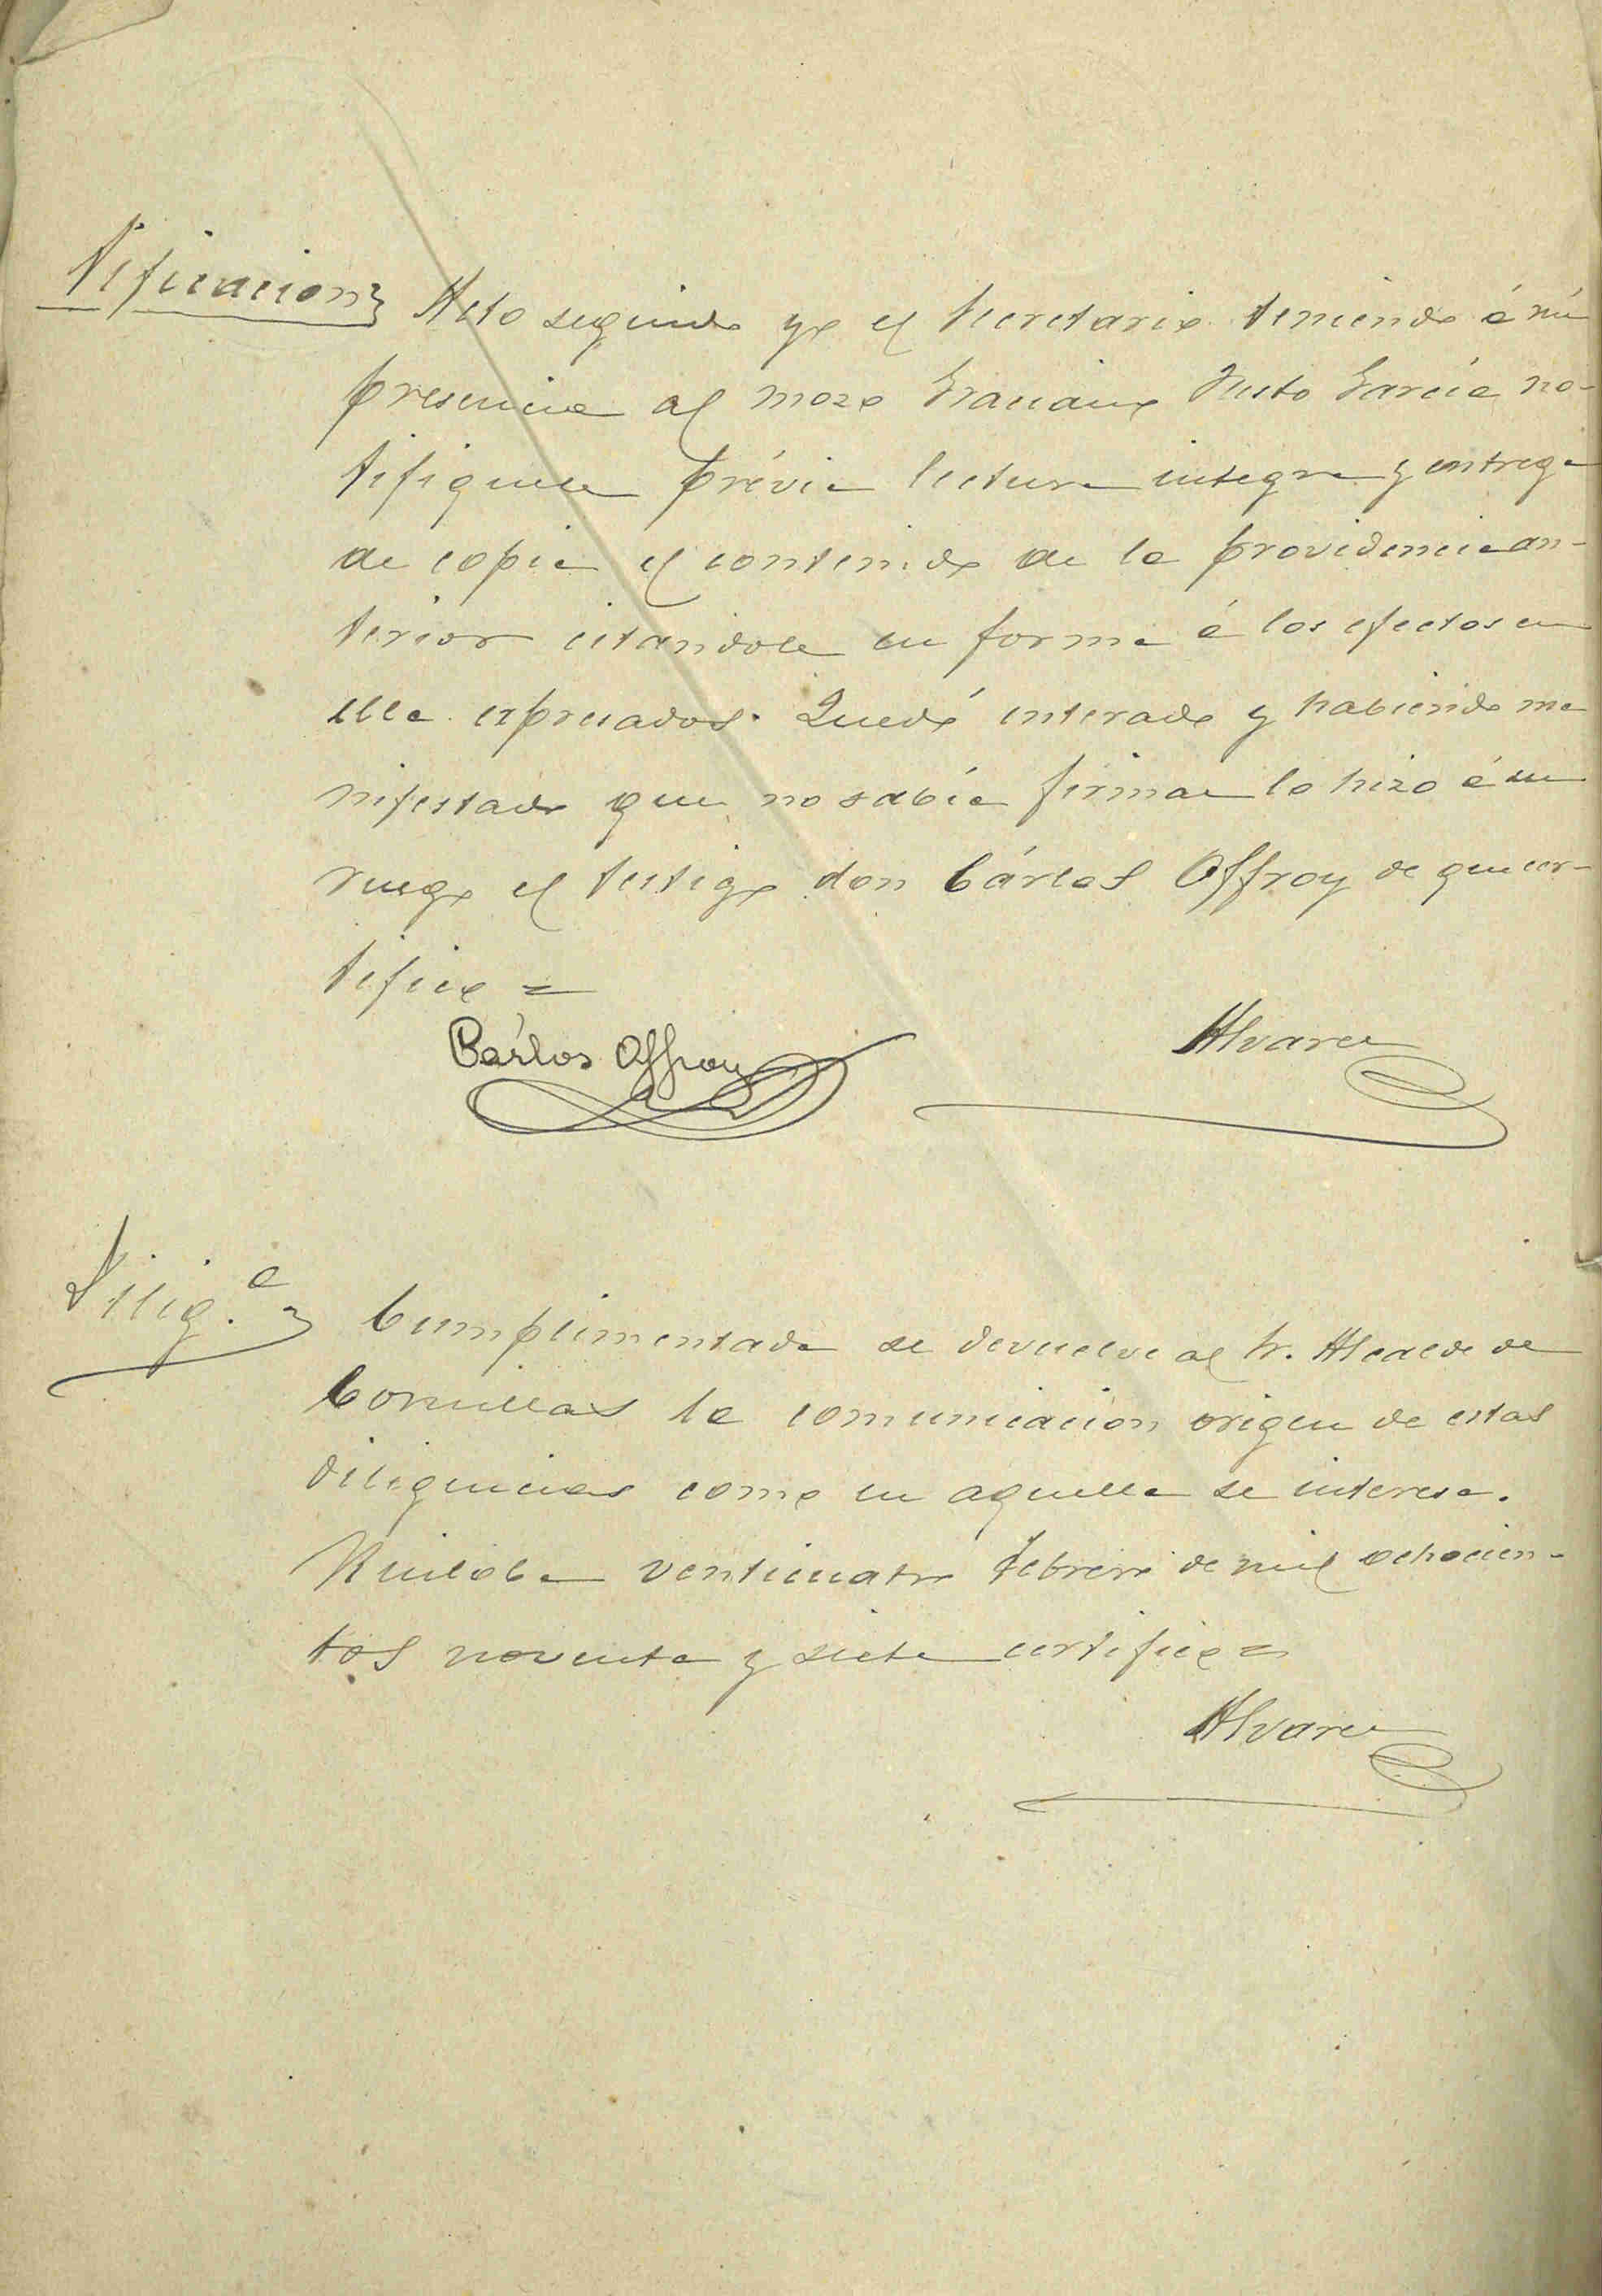 Nificacion
Acto seguido yo el Secretario teniendo á mi
presencia al mozo Graciano Justo García no-
tifiquele prévia lectura integra y entrega
de copia el contenido de la providencia an-
terior citandole en forma á los efectos en
ella expresados. Quedó enterado y habiendo ma
nifestado que no sabía firmar lo hizo á su
ruego el testigo don Cárlos Offroy de que cer-
tifico =
Cárlos Offroy Alvarez
Dilig.a
Cumplimentada se devuelve al Sr. Alcalde de
Comillas la comunicacion origen de estas
diligencias como en aquella se interesa.
Ruiloba venticuatro Febrero de mil ochocien-
tos noventa y siete certifico =
Alvarez